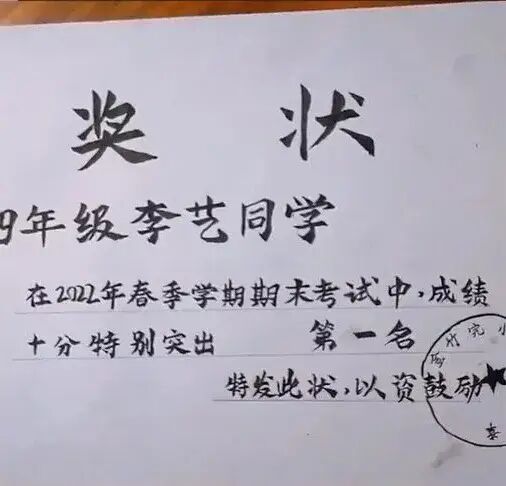 奖状
9年级李艺同学
在2022年春季学期期末考试中,成绩
十分特别突出 第一名
特发此状,以资鼓励